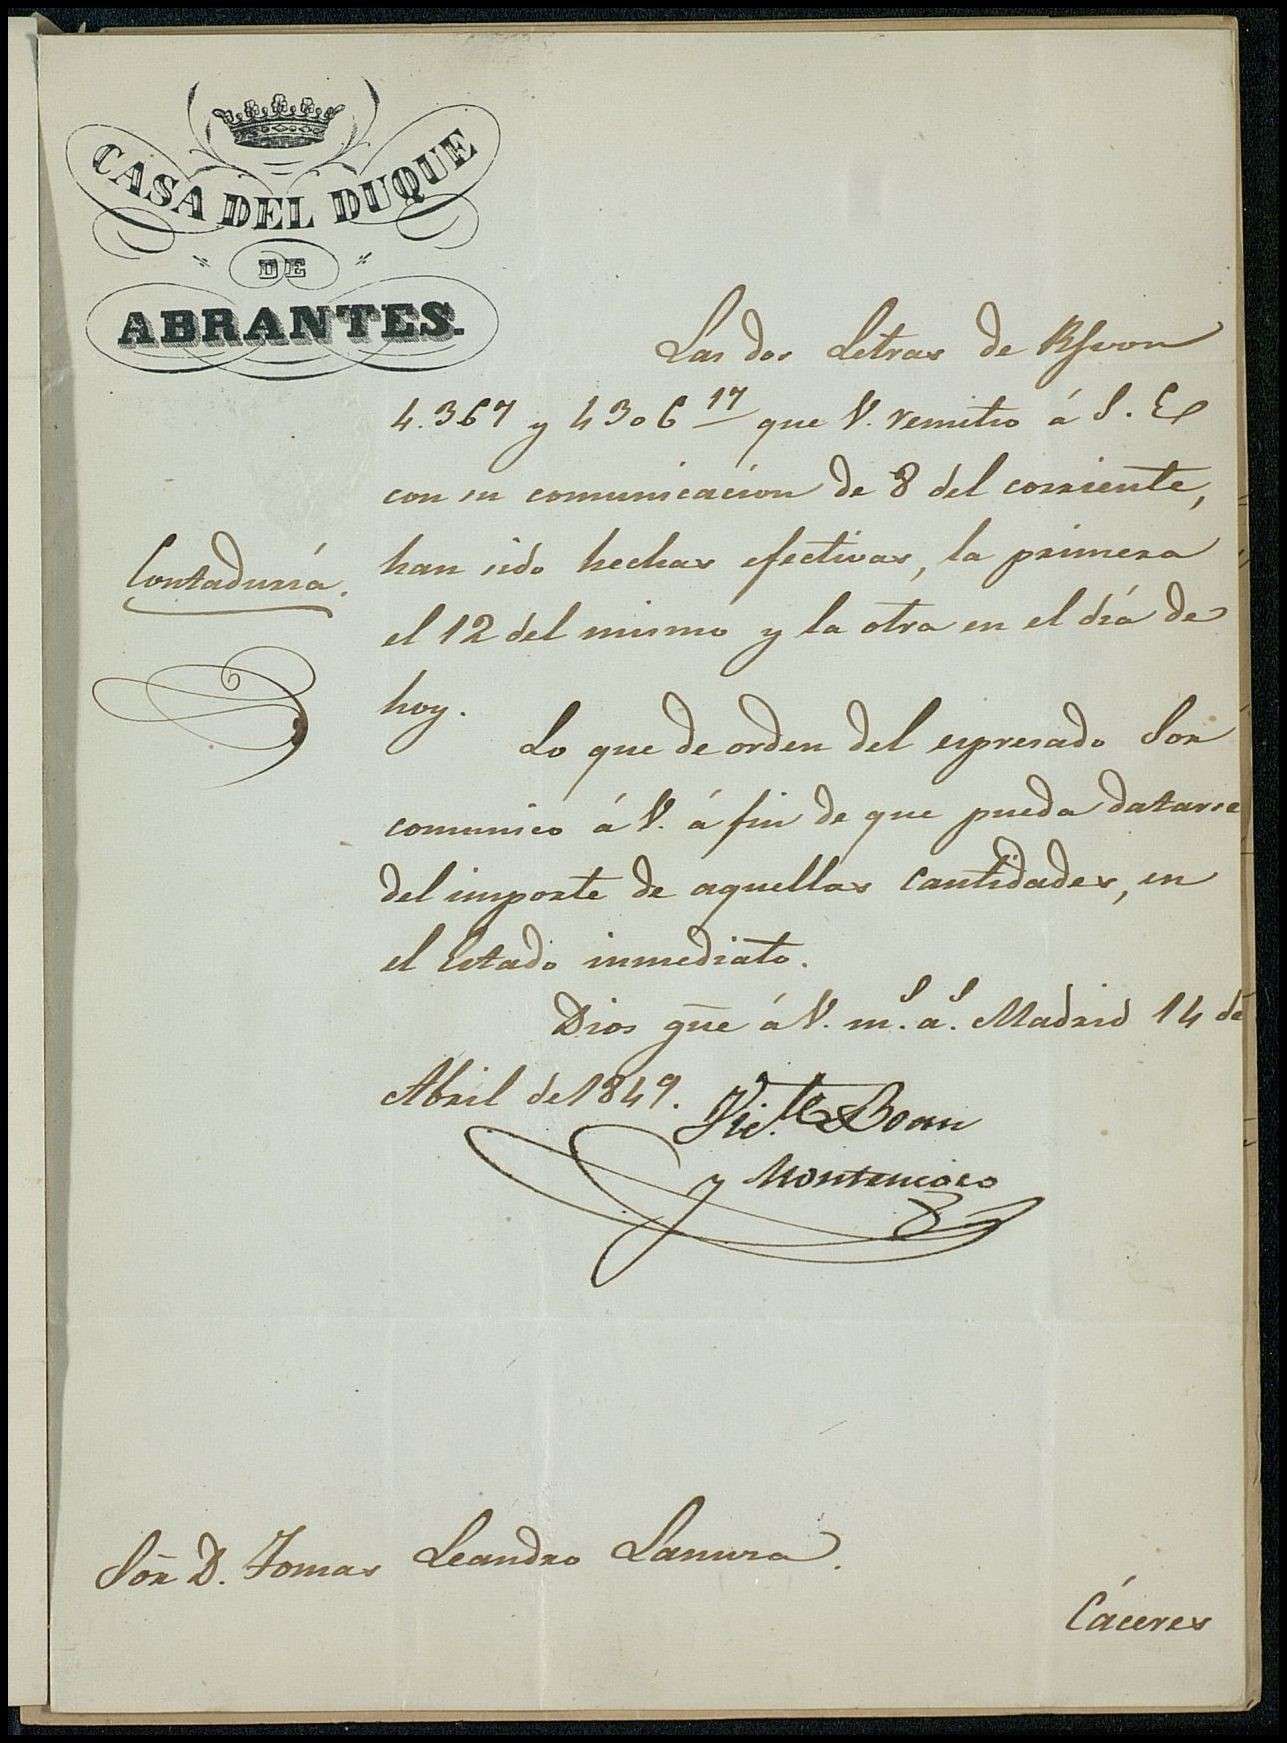 CASA DEL DUQUE
DE
ABRANTES.
Las dos Letras de Rs von
4.367 y 4306 17 que V. remitio á S. E
con su comunicacion de 8 del corriente,
Contaduría.
han sido hechas efectivas, la primera
el 12 del mismo y la otra en el día de
hoy.
Lo que de orden del espresado Sor
comunico á V. á fin de que pueda datarse
del importe de aquellas cantidades, en
el Estado inmediato.
Dios gūe á V. ms. as. Madrid 14 de
Abril de 1849.
Vic.te Boan
y Montenegro
Sōr D. Tomas Leandro
Cáceres